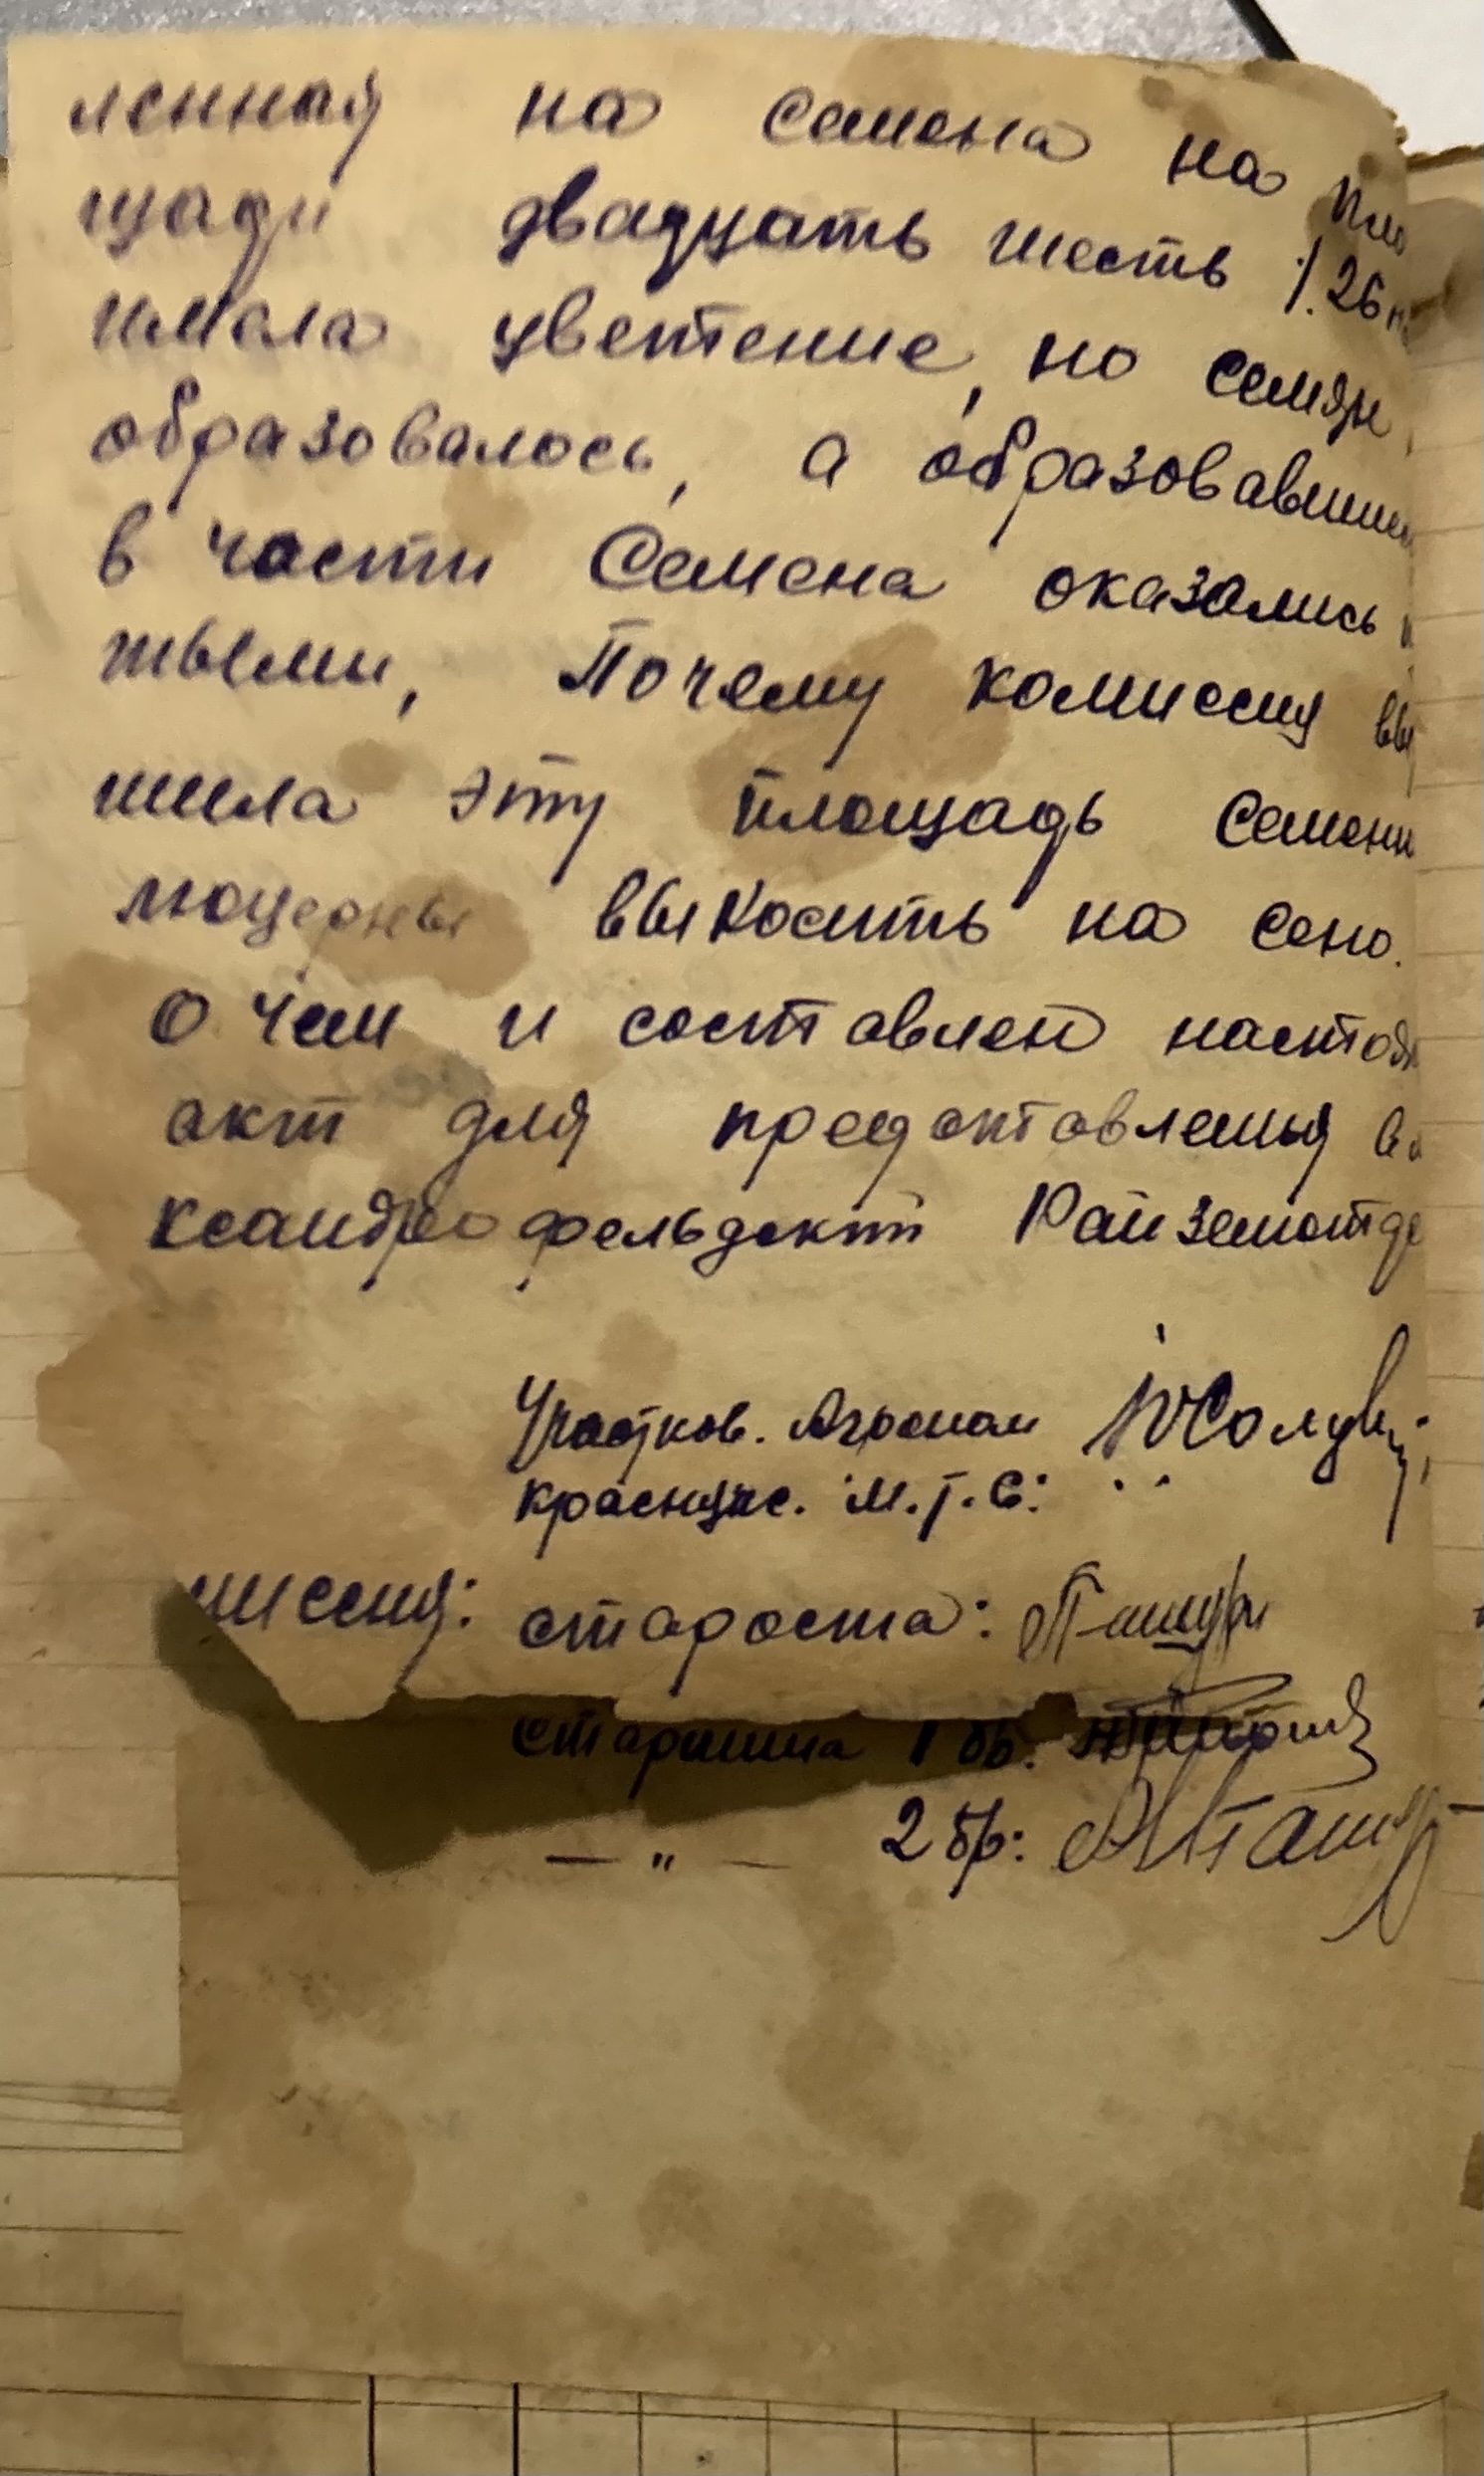 ленная на семена на пло
щади двадцать шесть /.26 н
имела цветение, но семян
образовалось, а образовавшие
в части семена оказались
тыми, Почему комиссия
шила эту площадь семенн
люцерны выкосить на сено.
О чем и составлен настоя
акт для предоставленья в
ксандрофельдскит Райземотде
Участков. Агроном
Краснуис. М.Т.С:
миссия: староста:
старшина 1 бр.
— " — 2 бр: